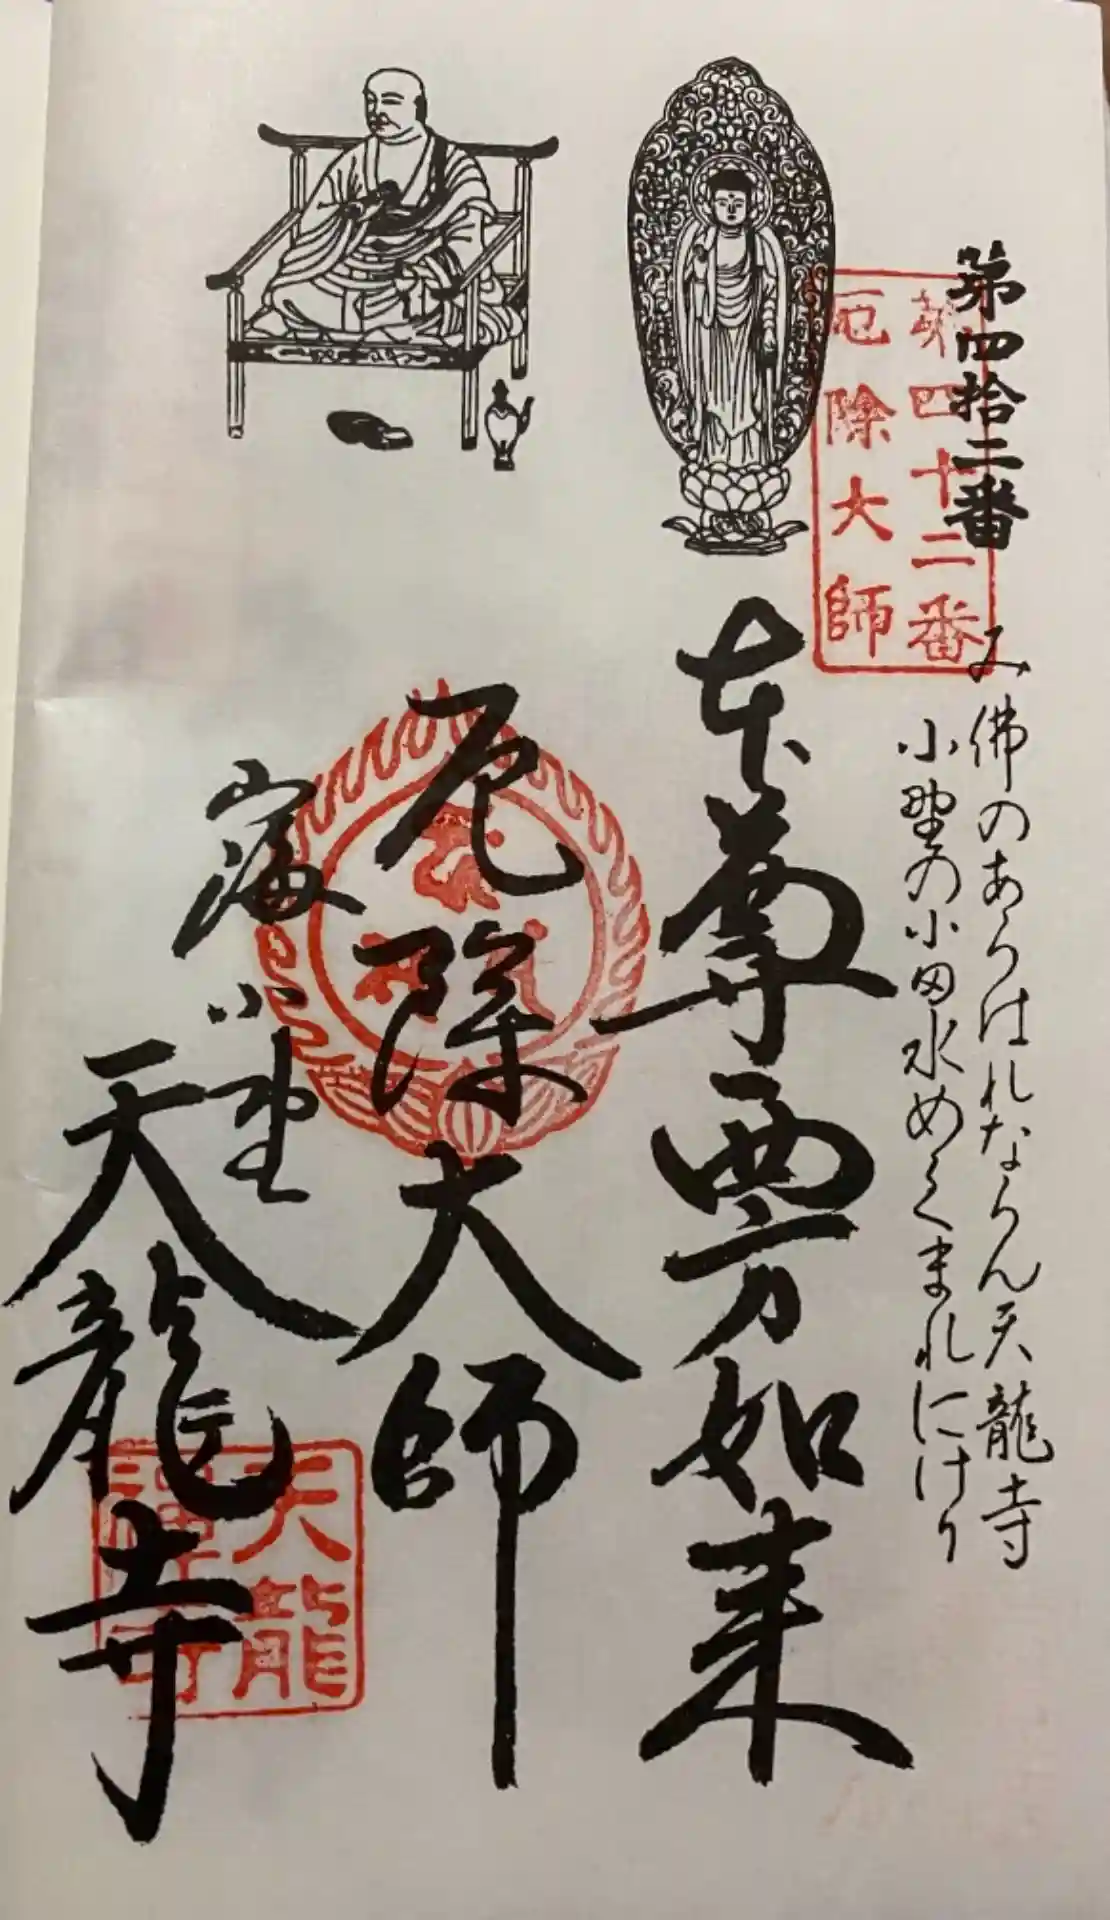 第四拾二番
第四十二番
厄除大師
み佛のあらはれならん天龍寺
小野の小田水めぐまれにけり
本尊西方如来
厄除大師
窪小野
天龍寺
天龍
禅寺